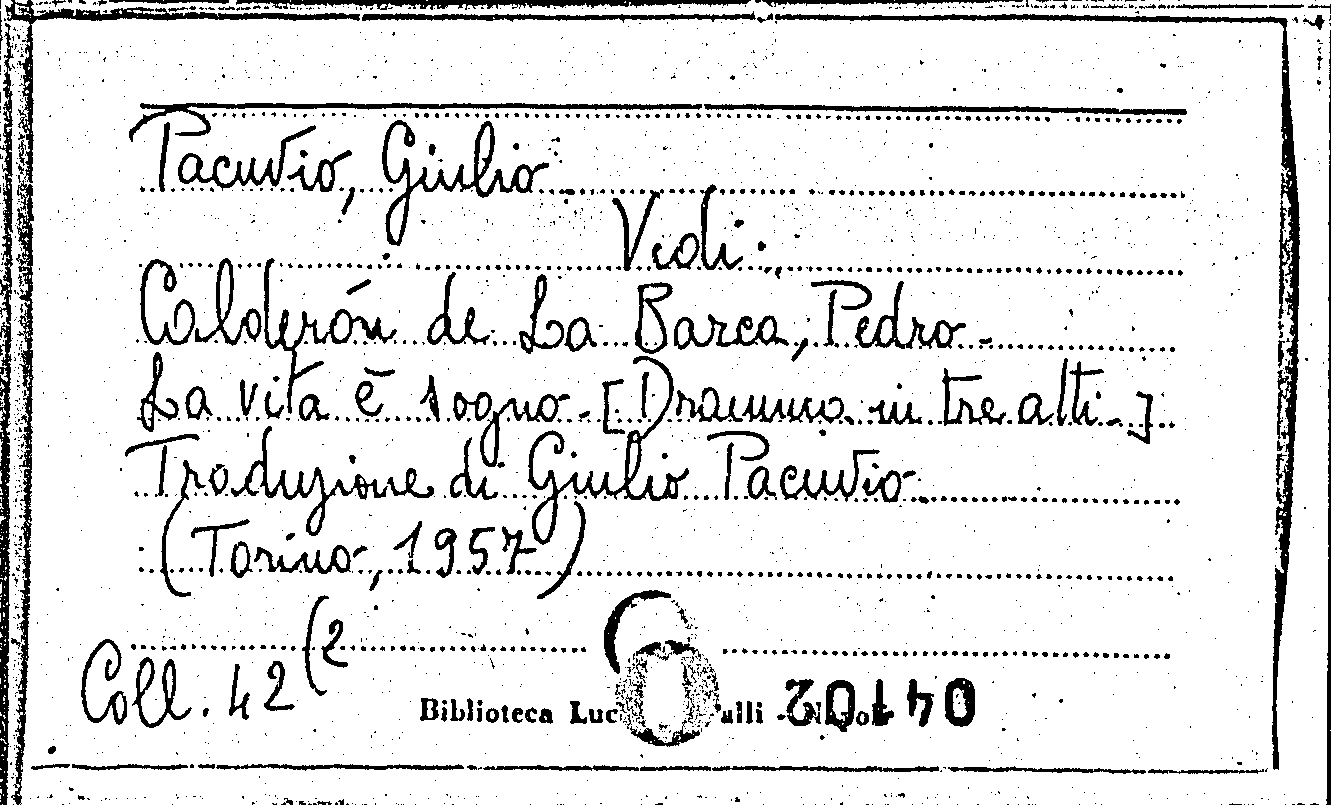 Pacuvio, Giulio
Vedi:
Calderón de La Barca, Pedro.
La vita è sogno. [Dramma in tre atti.]
Traduzione di Giulio Pacuvio.
(Torino, 1957)
Coll. 42 (2
Biblioteca Napoli
04102